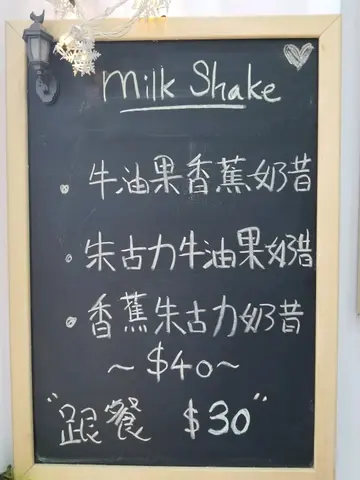 milk Shake
牛油果香蕉奶昔
朱古力牛油果奶昔
香蕉朱古力奶昔
~$40~
"跟餐 $30"